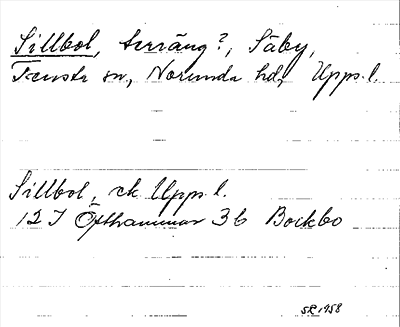 Sillbol, terräng?, Säby,
Tensta sn, Norunda hd, Upps. l.
Sillbol, ek Upps. l.
12 I Östhammar 3b Bockbo
SR 1958